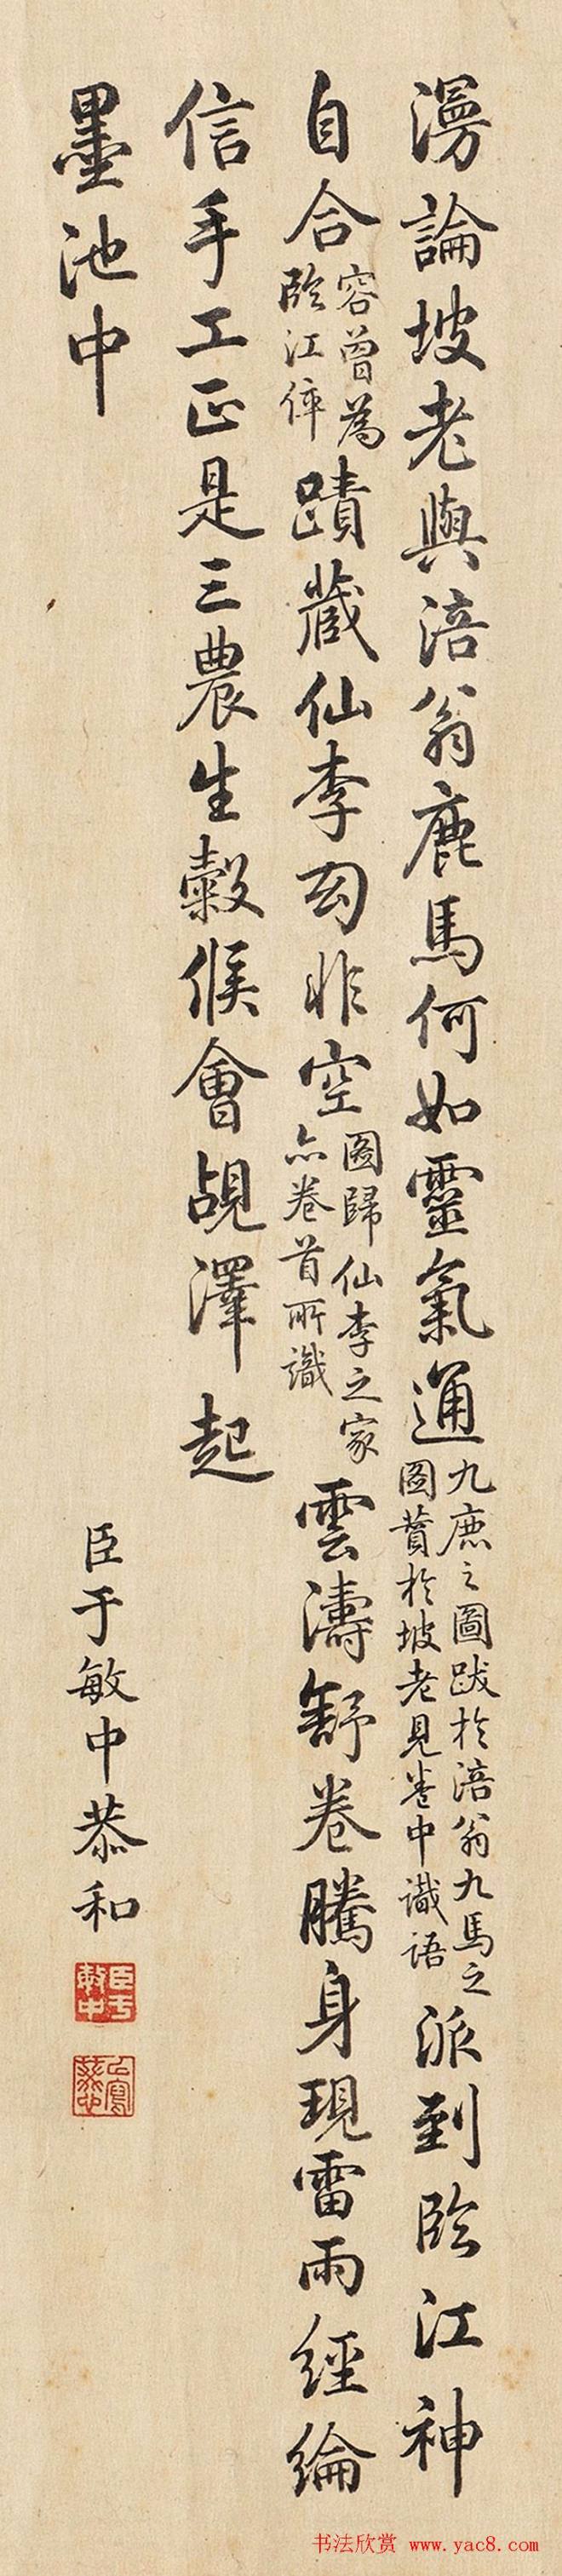 漫論坡老與涪翁鹿馬何如靈氣通九鹿之圖跋於涪翁九馬之圖贊於坡老見卷中識語派到臨江神
自合容曾為臨江倅蹟藏仙李句非空圖歸仙李之家亦卷首所識雲濤舒卷騰身現雷雨經綸
信手工正是三農生穀候會覘澤起
墨池中
臣于敏中恭和
臣于敏中
书法欣赏 www.yac8.com